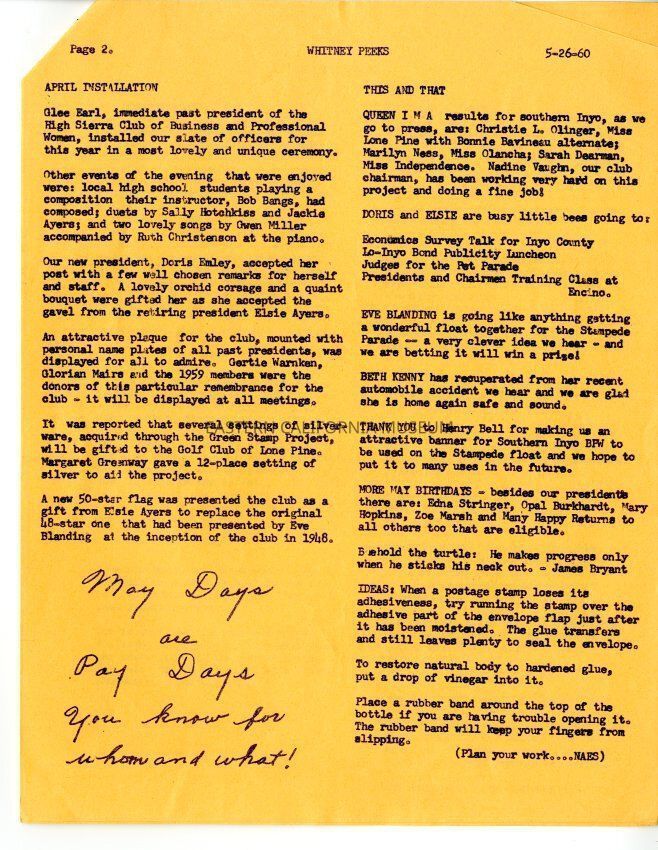 Page 2.
WHITNEY PEEKS
5-26-60
APRIL INSTALLATION
Glee Earl, immediate past president of the
High Sierra Club of Business and Professional
Women, installed our slate of officers for
this year in a most lovely and unique ceremony.
Other events of the evening that were enjoyed
were: local high school students playing a
composition their instructor, Bob Bangs, had
composed; duets by Sally Hotchkiss and Jackie
Ayers; and two lovely songs by Gwen Miller
accompanied by Ruth Christenson at the piano.
Our new president, Doris Emley, accepted her
post with a few well chosen remarks for herself
and staff. A lovely orchid corsage and a quaint
bouquet were gifted her as she accepted the
gavel from the retiring president Elsie Ayers.
An attractive plaque for the club, mounted with
personal name plates of all past presidents, was
displayed for all to admire. Gertie Warnken,
Glorian Mairs and the 1959 members were the
donors of this particular remembrance for the
club - it will be displayed at all meetings.
It was reported that several settings of silver
ware, acquired through the Green Stamp Project,
will be gifted to the Golf Club of Lone Pine.
Margaret Greenway gave a 12-place setting of
silver to aid the project.
A new 50-star flag was presented the club as a
gift from Elsie Ayers to replace the original
48-star one that had been presented by Eve
Blanding at the inception of the club in 1948.
May Days
are
Pay Days
You know for
whom and what!
THIS AND THAT
QUEEN I M A results for southern Inyo, as we
go to press, are: Christie L. Olinger, Miss
Lone Pine with Bonnie Bavineau alternate;
Marilyn Ness, Miss Olancha; Sarah Dearman,
Miss Independence. Nadine Vaughn, our club
chairman, has been working very hard on this
project and doing a fine job!
DORIS and ELSIE are busy little bees going to:
Economics Survey Talk for Inyo County
Lo-Inyo Bond Publicity Luncheon
Judges for the Pet Parade
Presidents and Chairmen Training Class at
Encino.
EVE BLANDING is going like anything getting
a wonderful float together for the Stampede
Parade -- a very clever idea we hear - and
we are betting it will win a prize!
BETH KENNY has recuperated from her recent
automobile accident we hear and we are glad
she is home again safe and sound.
THANK YOU to Henry Bell for making us an
attractive banner for Southern Inyo BPW to
be used on the Stampede float and we hope to
put it to many uses in the future.
MORE MAY BIRTHDAYS - besides our presidents
there are: Edna Stringer, Opal Burkhardt, Mary
Hopkins, Zoe Marsh and Many Happy Returns to
all others too that are eligible.
Behold the turtle: He makes progress only
when he sticks his neck out. - James Bryant
IDEAS: When a postage stamp loses its
adhesiveness, try running the stamp over the
adhesive part of the envelope flap just after
it has been moistened. The glue transfers
and still leaves plenty to seal the envelope.
To restore natural body to hardened glue,
put a drop of vinegar into it.
Place a rubber band around the top of the
bottle if you are having trouble opening it.
The rubber band will keep your fingers from
slipping.
(Plan your work....NAES)
EASTERN CALIFORNIA MUSEUM